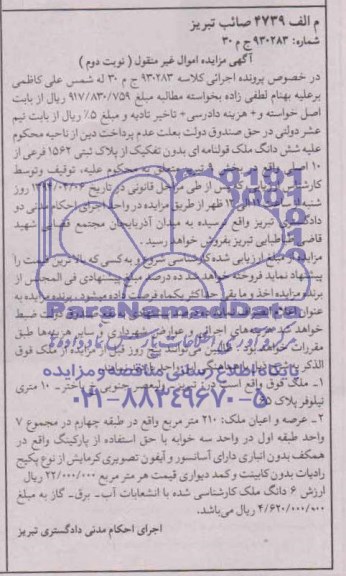 م الف ۴۷۳۹ صائب تبریز
شماره: ۹۳۰۲۸۳ ج م ۳۰
آگهی مزایده اموال غیر منقول ( نوبت دوم )
در خصوص پرونده اجرائی کلاسه ۹۳۰۲۸۳ ج م ۳۰ له شمس علی کاظمی
برعلیه بهنام لطفی زاده بخواسته مطالبه مبلغ ۹۱۷/۸۳۰/۷۵۹ ریال از بابت
اصل خواسته و+ هزینه دادرسی+ تاخیر تادیه و مبلغ ۵٪ ریال از بابت نیم
عشر دولتی در حق صندوق دولت بعلت عدم پرداخت دین از ناحیه محکوم
علیه شش دانگ ملک قولنامه ای بدون تفکیک از پلاک ثبتی ۱۵۶۲ فرعی از
۱۰ اصلی واقع در بخش تبریز محکوم علیه، توقیف وتوسط
کارشناس پس از طی مراحل قانونی در تاریخ روز
شنبه از ساعت الی ۱۲ ظهر از طریق مزایده در واحد اجرای احکام مدنی دو
دادگستری تبریز واقع نرسیده به میدان آذربایجان مجتمع قضایی شهید
قاضی طباطبایی تبریز بفروش خواهد رسید .
مزایده از مبلغ ارزیابی شده کارشناسی شروع و به کسی که بالاترین قیمت را
پیشنهاد نماید فروخته خواهد شد ده درصد مبلغ پیشنهادی فی المجلس از
برنده مزایده اخذ و ما بقی حداکثر یکماه فرصت داده میشود. برنده مزایده به
عنوان ضبط
خواهد شد هزینه های اجرائی و عوارض شهرداری و سایر هزینه ها طبق
مقررات خواهد بود . متقاضیان می توانند پنج روز قبل از مزایده از ملک فوق
الذکر
ParsNamadData
پایگاه اطلاع رسانی مناقصه و مزایده
۰۲۱-۸۸۳۴۹۶۷۰-۵
۱- ملک فوق واقع است در: تبریز- ولیعصر جنوبی- باختر- ۱۰ متری
نیلوفر پلاک ۶۵
۲- عرصه و اعیان ملک: ۲۱۰ متر مربع واقع در طبقه چهارم در مجموع ۷
واحد طبقه اول در واحد سه خوابه با حق استفاده از پارکینگ واقع در
همکف بدون انباری دارای آسانسور و آیفون تصویری کرمایش از نوع پکیج
رادیات بدون کابینت و کمد دیواری قیمت هر متر مربع ۲۲/۰۰۰/۰۰۰ ریال
ارزش ۶ دانگ ملک کارشناسی شده با انشعابات آب- برق- گاز به مبلغ
۴/۶۲۰/۰۰۰/۰۰۰ ریال می‌باشد.
اجرای احکام مدنی دادگستری تبریز